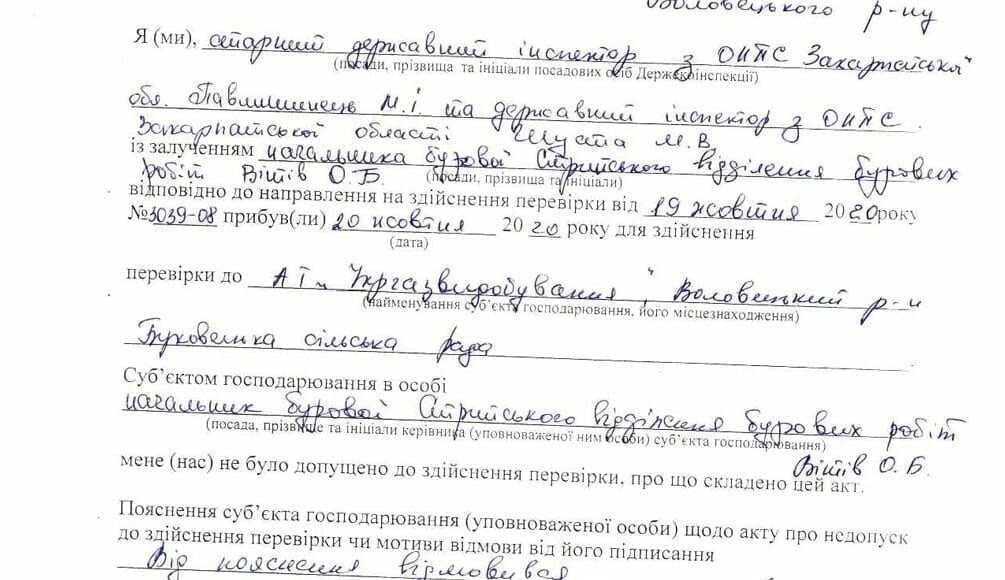 Воловецького р-ну
Я (ми), старший державний інспектор з ОНПС Закарпатської
(посади, прізвища та ініціали посадових осіб Держекоінспекції)
обл. Павлишинець М.І. та державний інспектор з ОНПС
Закарпатської області Шуста М.В.
із залученням начальника бурової Стрийського відділення бурових
робіт Вітів О.Б. (посади, прізвища та ініціали)
відповідно до направлення на здійснення перевірки від 19 жовтня 2020 року
№3039-08 прибув(ли) 20 жовтня 20 20 року для здійснення
(дата)
перевірки до АТ „Укргазвидобування", Воловецький р-н
(найменування суб’єкта господарювання, його місцезнаходження)
Буковецька сільська рада
Суб’єктом господарювання в особі
начальник бурової Стрийського відділення бурових робіт
(посада, прізвище та ініціали керівника (уповноваженої ним особи) суб’єкта господарювання)
Вітів О.Б.
мене (нас) не було допущено до здійснення перевірки, про що складено цей акт.
Пояснення суб’єкта господарювання (уповноваженої особи) щодо акту про недопуск
до здійснення перевірки чи мотиви відмови від його підписання
Від пояснення відмовився